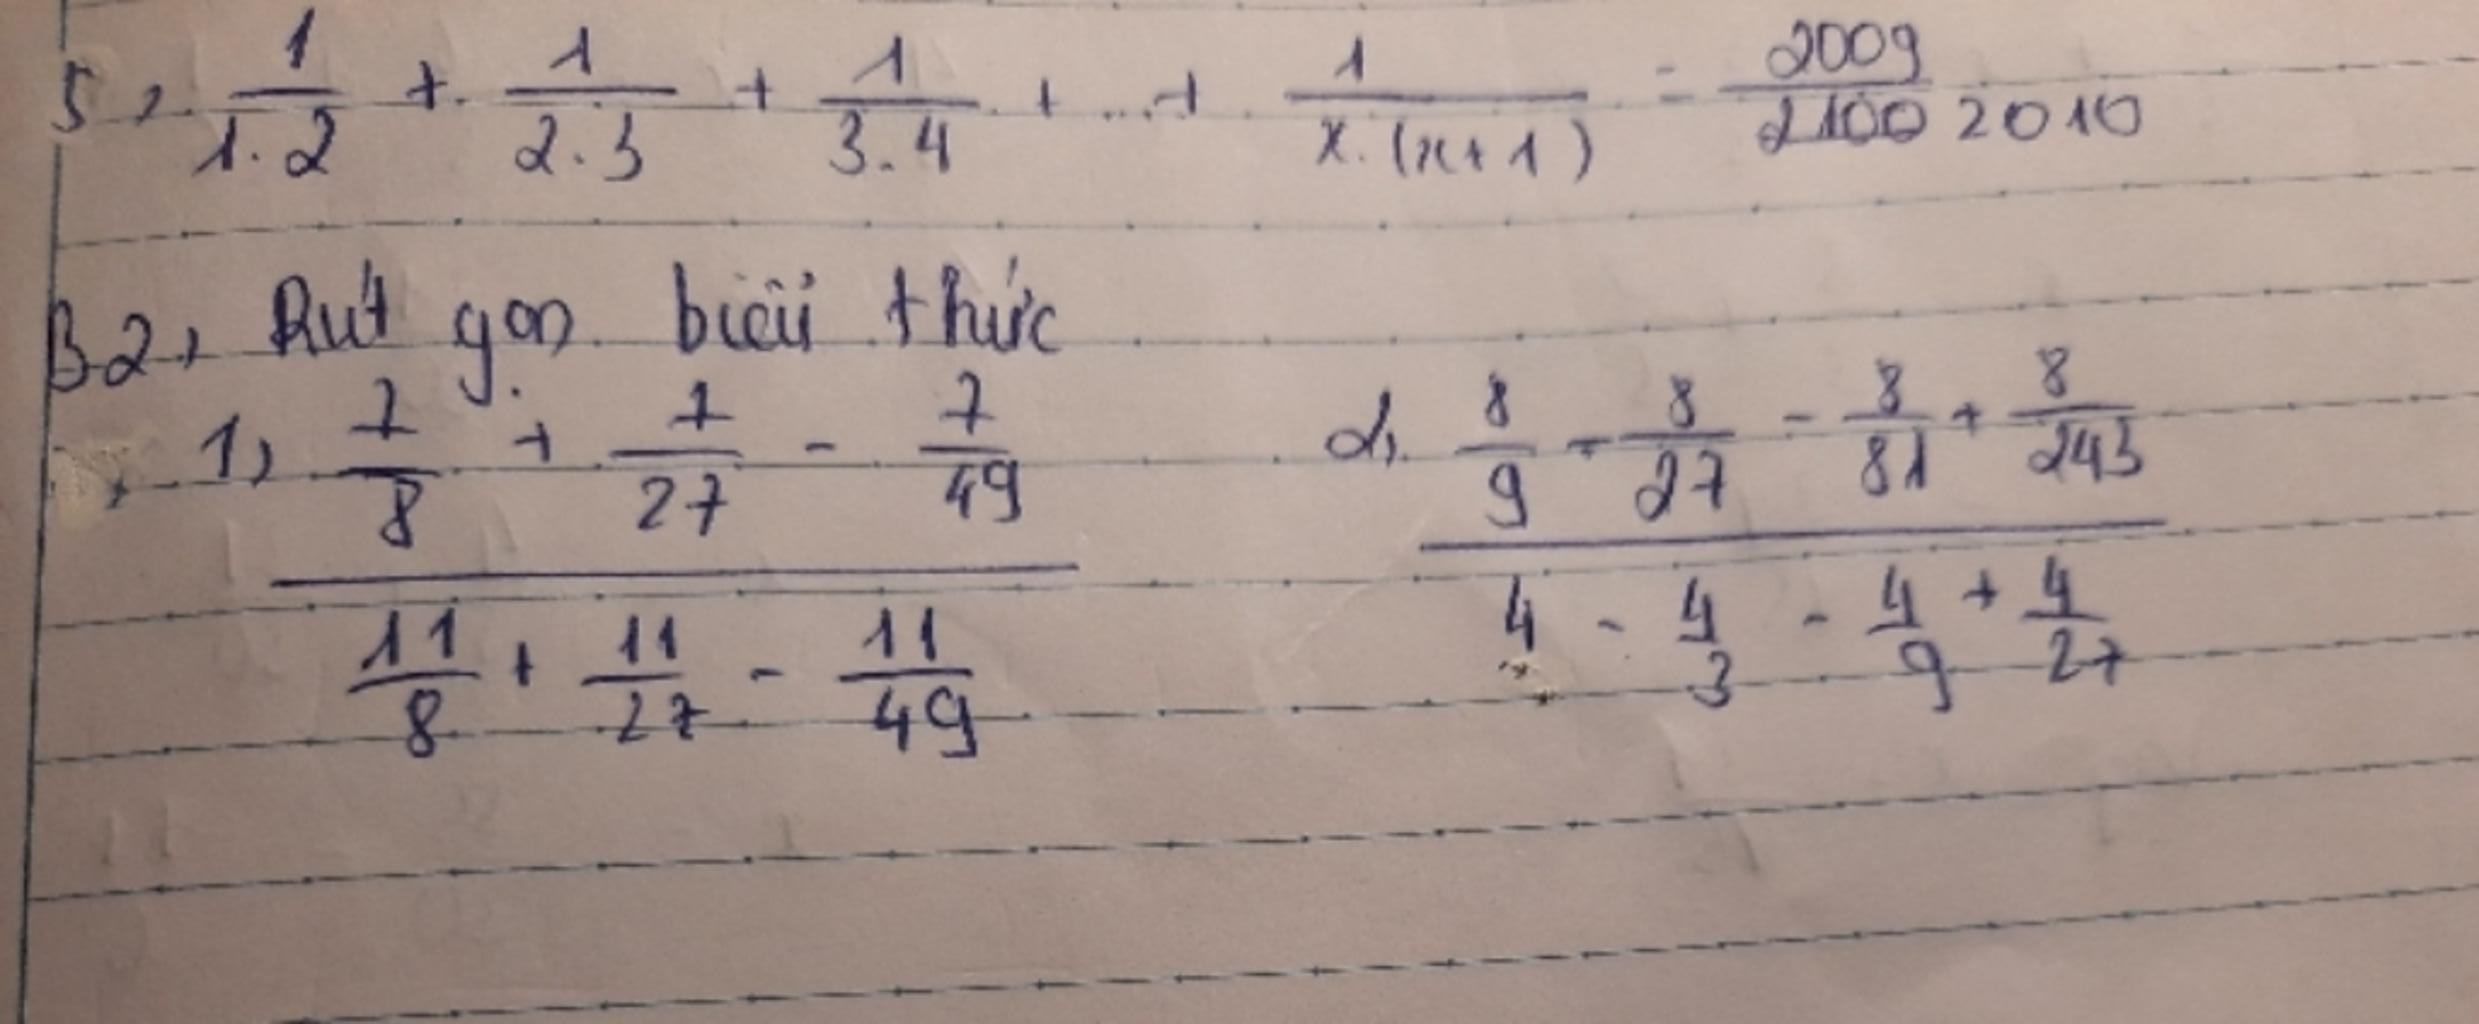 5, 1/1.2 + 1/2.3 + 1/3.4 + ... + 1/x.(x+1) = 2009/2100 2010
B2, Rút gọn biểu thức
1, (7/8 + 7/27 - 7/49)/(11/8 + 11/27 - 11/49)
2, (8/9 - 8/27 - 8/81 + 8/243)/(4 - 4/3 - 4/9 + 4/27)